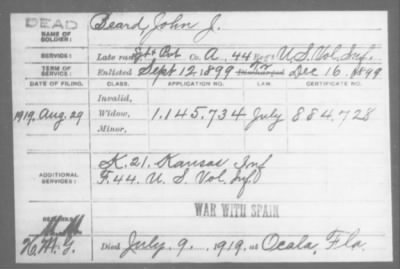 DEAD
NAME OF SOLDIER: Beard, John J.
SERVICE: Late rank, Sgt & Pvt Co. A, 44 Reg't U.S. Vol. Inf.
TERM OF SERVICE: Enlisted Sept 12, 1899 Discharged Dec 16, 1899
DATE OF FILING. CLASS. APPLICATION NO. LAW. CERTIFICATE NO.
Invalid,
1919, Aug. 29 Widow, 1.145.734 July 884.728
Minor,
ADDITIONAL SERVICES: K. 21. Kansas Inf
F. 44. U. S. Vol. Inf.
WAR WITH SPAIN
REMARKS:
H. M. G. Died July 9, 1919, at Ocala, Fla.